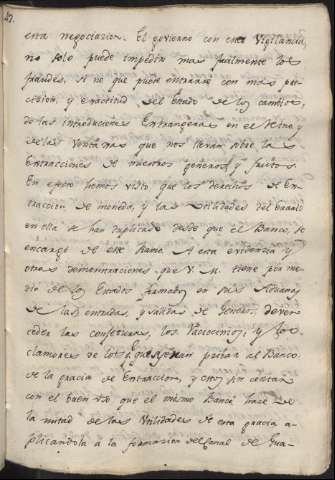 27.
esta negociacion. El govierno con esta Vigilancia
no solo puede impedir mas facilmente los
fraudes, si no que puede enterarse con mas pre-
cision, y exactitud del Estado de los cambios,
de las introduciones Extrangeras en el Reino, y
de las Ventajas que nos llevan sobre las
extracciones de nuestros generos, y frutos.
En efecto hemos visto que los derechos de Ex-
traccion de moneda, y las Utilidades del Erario
en ella se han duplicado desde que el Banco, se
encargó de este Ramo. A esta evidencia y
otras demonstraciones que V. M. tiene por me-
dio de los Estados formados en sus Aduanas
de las entradas, y salidas de Generos, deven
ceder las congeturas, los raciocinios, y los
clamores de los que quieren privar al Banco
de la gracia de extraccion, y esto sin contar
con el buen uso que el mismo Banco hace de
la mitad de las Utilidades de esta gracia a-
plicandola à la formacion del Canal de Gua-